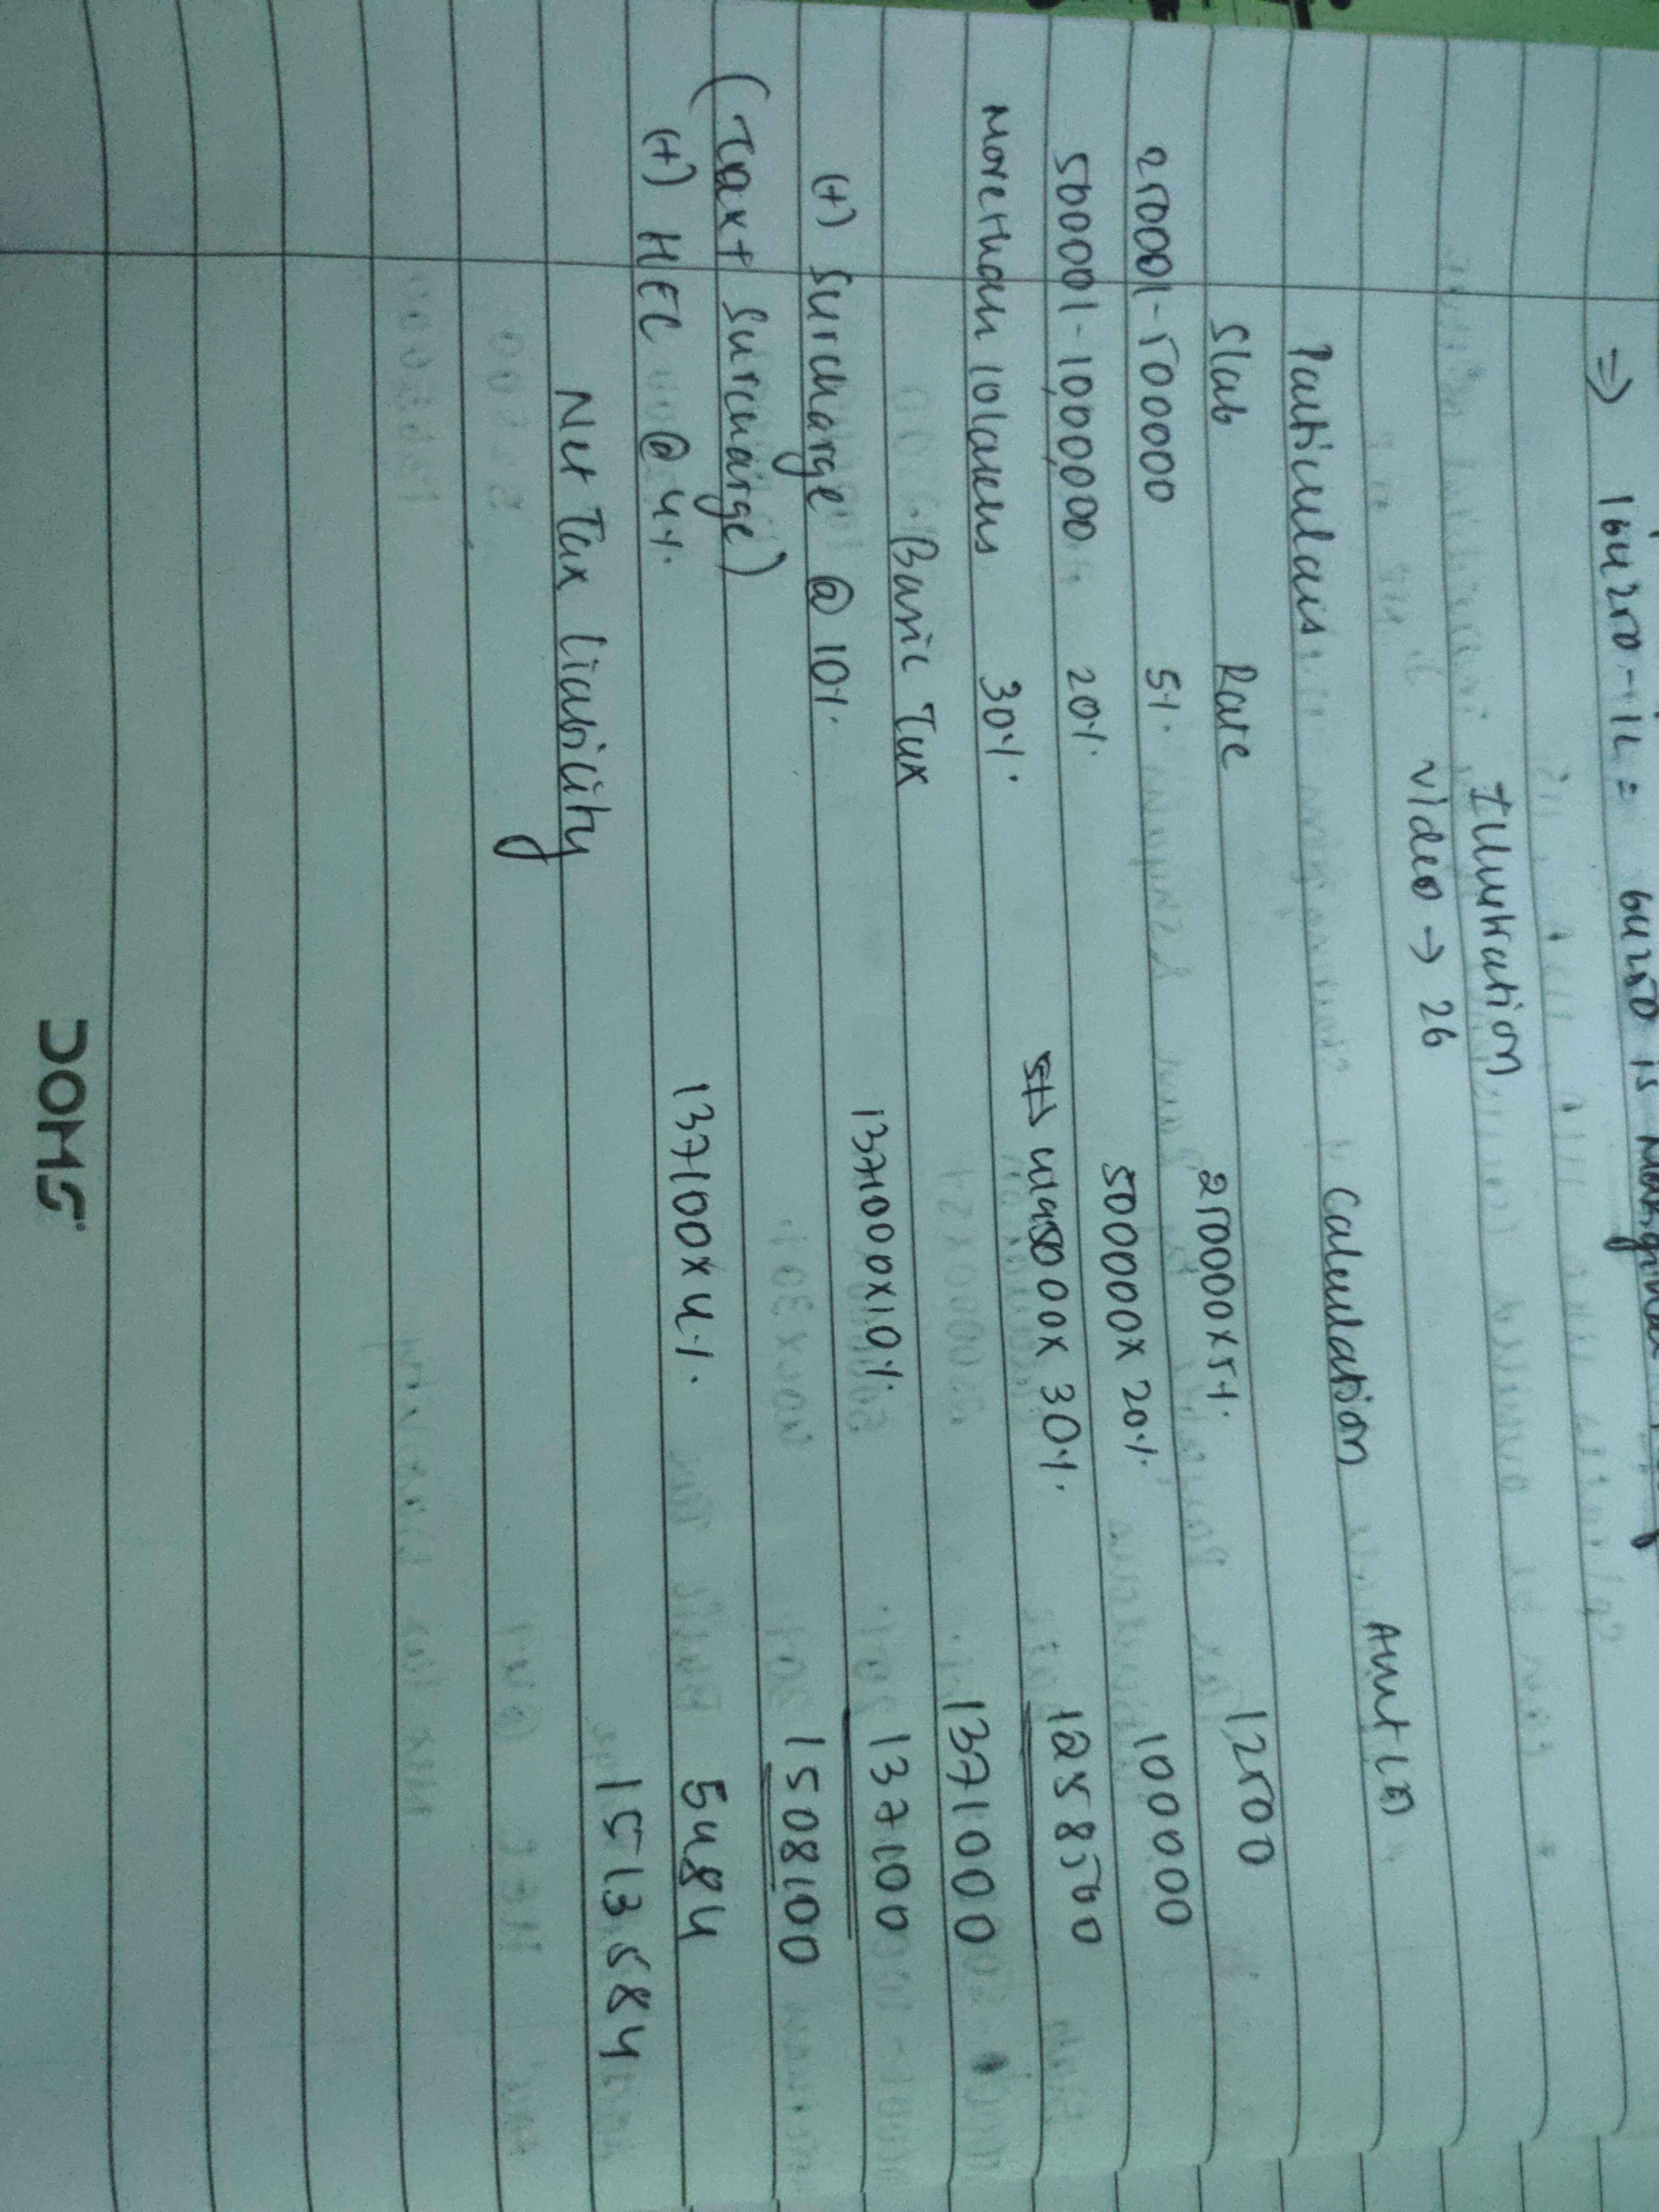 => 164250-1L = 64250 is Marginal
Illustration
Video → 26
Particulars Calculation Amt (₹)
Slab Rate
250001-500000 5% 250000 x 5% 12500
500001-10,00,000 20% 500000 x 20% 100000
More than 10 lakhs 30% 4450000 x 30% 1258500
Basic Tax 1371000
(+) Surcharge @ 10% 1371000 x 10% 137100
(Tax + Surcharge) 1508100
(+) HEC @ 4% 137100 x 4% 5484
Net Tax Liability 1513584
DOMS